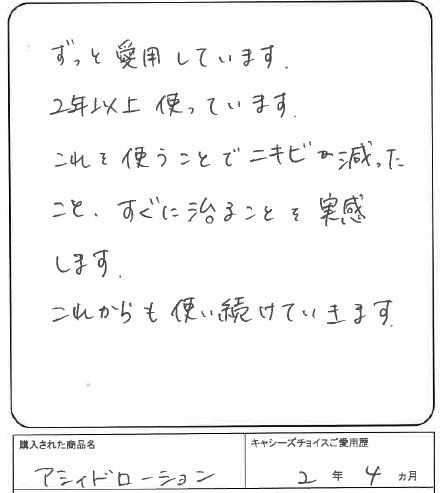 ずっと愛用しています.
2年以上使っています.
これを使うことでニキビが減った
こと、すぐに治ることを実感
します.
これからも使い続けていきます.
購入された商品名
キャシーズチョイスご愛用歴
アシィドローション
2年4ヵ月